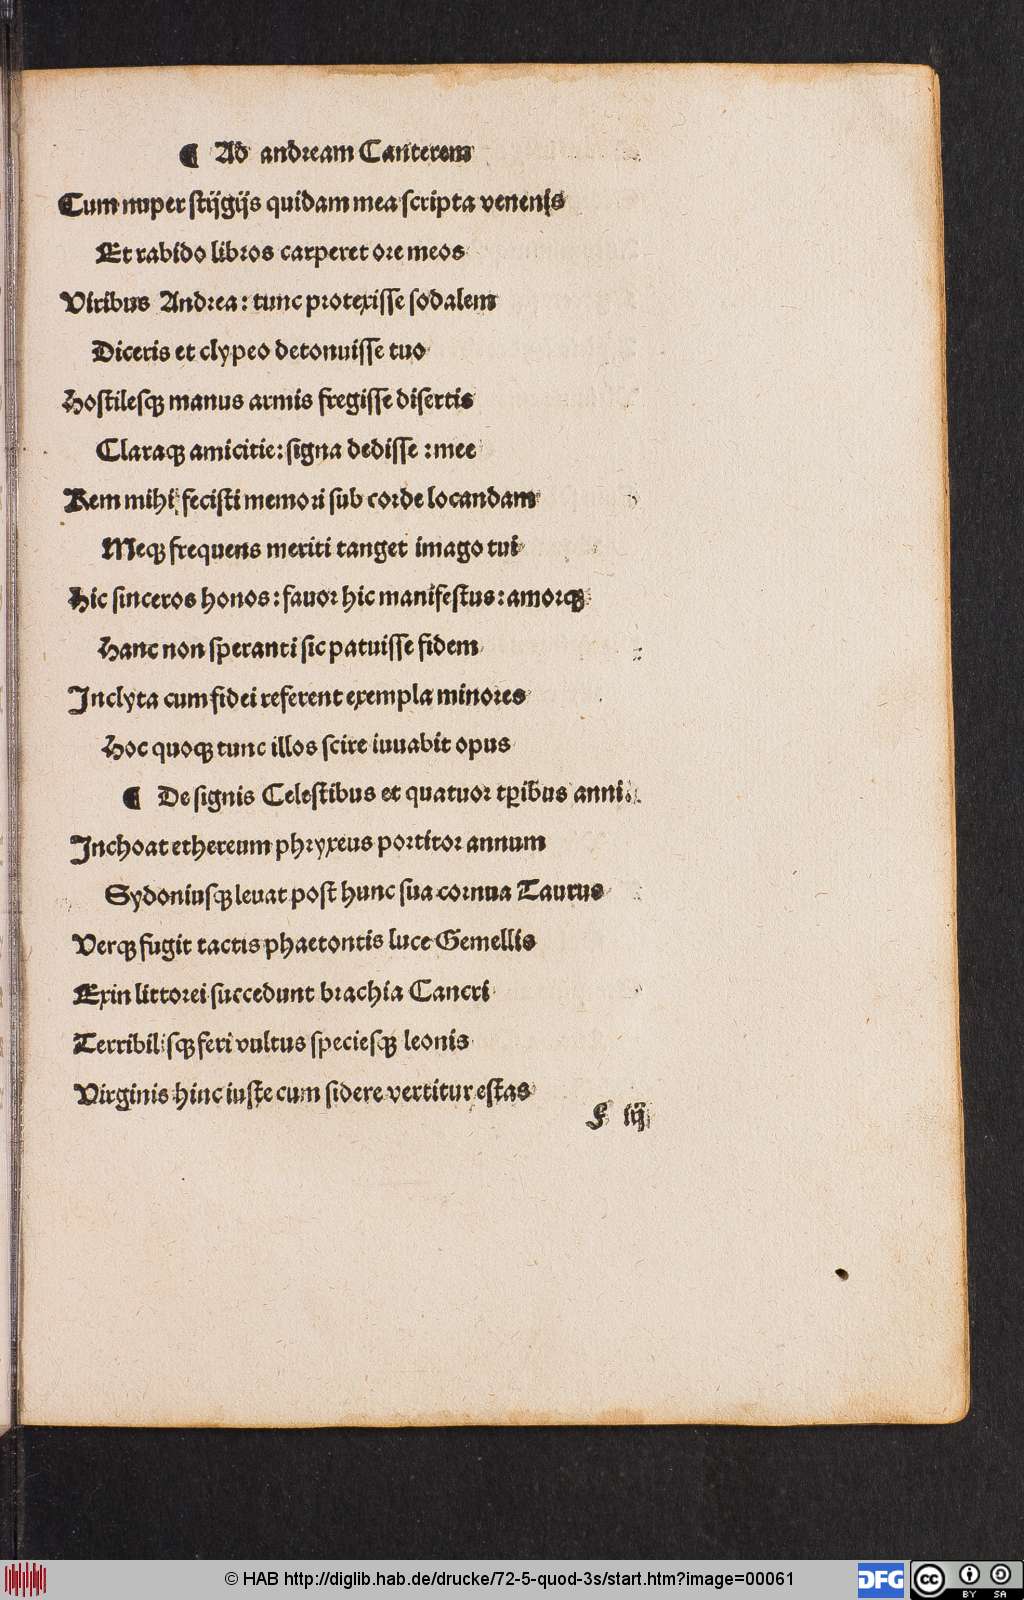 ¶ Ad andream Canterem
Cum nuper stijgijs quidam mea scripta venenis
Et rabido libros carperet ore meos
Viribus Andrea: tunc protexisse sodalem
Diceris et clypeo detonuisse tuo
Hostilesqꝫ manus armis fregisse disertis
Claraqꝫ amicitie: signa dedisse: mee
Rem mihi fecisti memori sub corde locandam
Meqꝫ frequens meriti tanget imago tui
Hic sinceros honos: fauor hic manifestus: amorqꝫ
Hanc non speranti sic patuisse fidem
Inclyta cum fidei referent exempla minores
Hoc quoqꝫ tunc illos scire iuuabit opus
¶ De signis Celestibus et quatuor tꝑib̄us anni.
Inchoat ethereum phryxeus portitor annum
Sydoniusqꝫ leuat post hunc sua cornua Taurus
Verqꝫ fugit tactis phaetontis luce Gemellis
Exin littorei succedunt brachia Cancri
Terribilisqꝫ feri vultus speciesqꝫ leonis
Virginis hinc iuste cum sidere vertitur estas
f iij
© HAB http://diglib.hab.de/drucke/72-5-quod-3s/start.htm?image=00061
DFG
cc BY SA